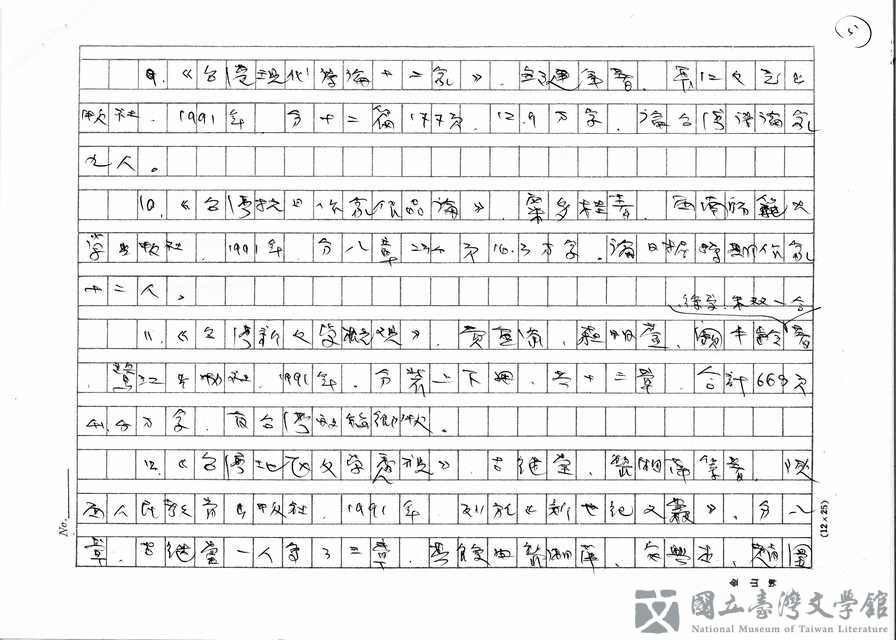 5
9.《台灣現代學論十二家》.連著.
版社.1991年.分十二篇177頁.12.9萬字.論台灣評論家
九人。
10.《台灣抗日作家作品論》.著.西南師範大
學出版社.1991年.分八章234頁16.3萬字.論日據時期作家
十二人。
徐學.朱双一合
11.《台灣新文學概觀》.黃重添.莊明萱.闕丰齡著
鷺江出版社.1991年.分裝上下冊.共十三章.合計668頁
有台灣版稻鄉版。
12.《台灣地區文學透視》.古繼堂.黎湘萍等著.陝
西人民教育出版社.1991年.列於《新世紀文叢》.分八
章.古繼堂一人寫了三章.其餘由黎湘萍.
No.
(12×25)
國立臺灣文學館
National Museum of Taiwan Literature